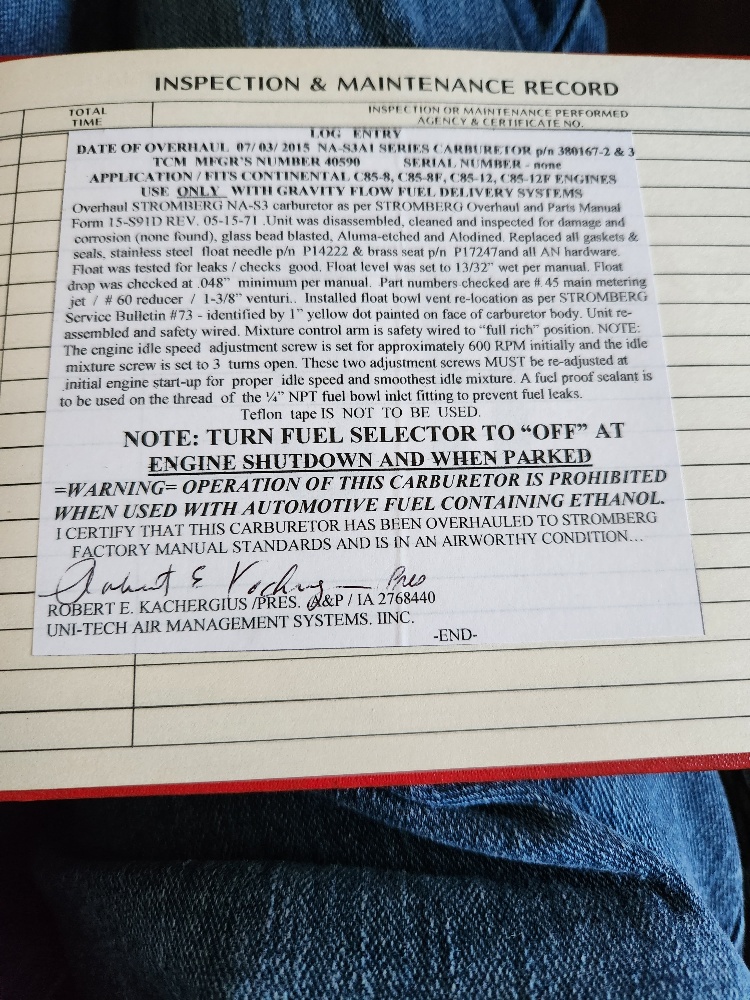 INSPECTION & MAINTENANCE RECORD
TOTAL TIME
INSPECTION OR MAINTENANCE PERFORMED
AGENCY & CERTIFICATE NO.
LOG ENTRY
DATE OF OVERHAUL 07/03/2015 NA-S3A1 SERIES CARBURETOR p/n 380167-2 & 3
TCM MFGR'S NUMBER 40590 SERIAL NUMBER - none
APPLICATION / FITS CONTINENTAL C85-8, C85-8F, C85-12, C85-12F ENGINES
USE ONLY WITH GRAVITY FLOW FUEL DELIVERY SYSTEMS
Overhaul STROMBERG NA-S3 carburetor as per STROMBERG Overhaul and Parts Manual
Form 15-S91D REV. 05-15-71 .Unit was disassembled, cleaned and inspected for damage and
corrosion (none found), glass bead blasted, Aluma-etched and Alodined. Replaced all gaskets &
seals, stainless steel float needle p/n P14222 & brass seat p/n P17247and all AN hardware.
Float was tested for leaks / checks good. Float level was set to 13/32" wet per manual. Float
drop was checked at .048" minimum per manual. Part numbers checked are #.45 main metering
jet / # 60 reducer / 1-3/8" venturi.. Installed float bowl vent re-location as per STROMBERG
Service Bulletin #73 - identified by 1" yellow dot painted on face of carburetor body. Unit re-
assembled and safety wired. Mixture control arm is safety wired to "full rich" position. NOTE:
The engine idle speed adjustment screw is set for approximately 600 RPM initially and the idle
mixture screw is set to 3 turns open. These two adjustment screws MUST be re-adjusted at
initial engine start-up for proper idle speed and smoothest idle mixture. A fuel proof sealant is
to be used on the thread of the ¼" NPT fuel bowl inlet fitting to prevent fuel leaks.
Teflon tape IS NOT TO BE USED.
NOTE: TURN FUEL SELECTOR TO "OFF" AT
ENGINE SHUTDOWN AND WHEN PARKED
=WARNING= OPERATION OF THIS CARBURETOR IS PROHIBITED
WHEN USED WITH AUTOMOTIVE FUEL CONTAINING ETHANOL.
I CERTIFY THAT THIS CARBURETOR HAS BEEN OVERHAULED TO STROMBERG
FACTORY MANUAL STANDARDS AND IS IN AN AIRWORTHY CONDITION...
Robert E Kachergius Pres
ROBERT E. KACHERGIUS /PRES. A&P / IA 2768440
UNI-TECH AIR MANAGEMENT SYSTEMS. IINC.
-END-